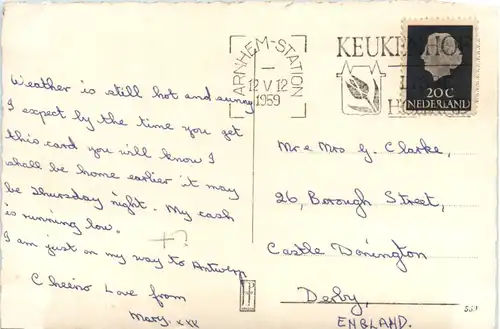 Weather is still hot and sunny
I expect by the time you get
this card you will know I
shall be home earlier it may
be Thursday night. My cash
is running low.
I am just on my way to Antwerp
Cheerio Love from
Mary. xxx
ARNHEM-STATION
12 V 12
1959
KEUKENHOF
20C
NEDERLAND
Mr & Mrs G. Clarke,
26, Borough Street,
Castle Donington
Derby,
ENGLAND.